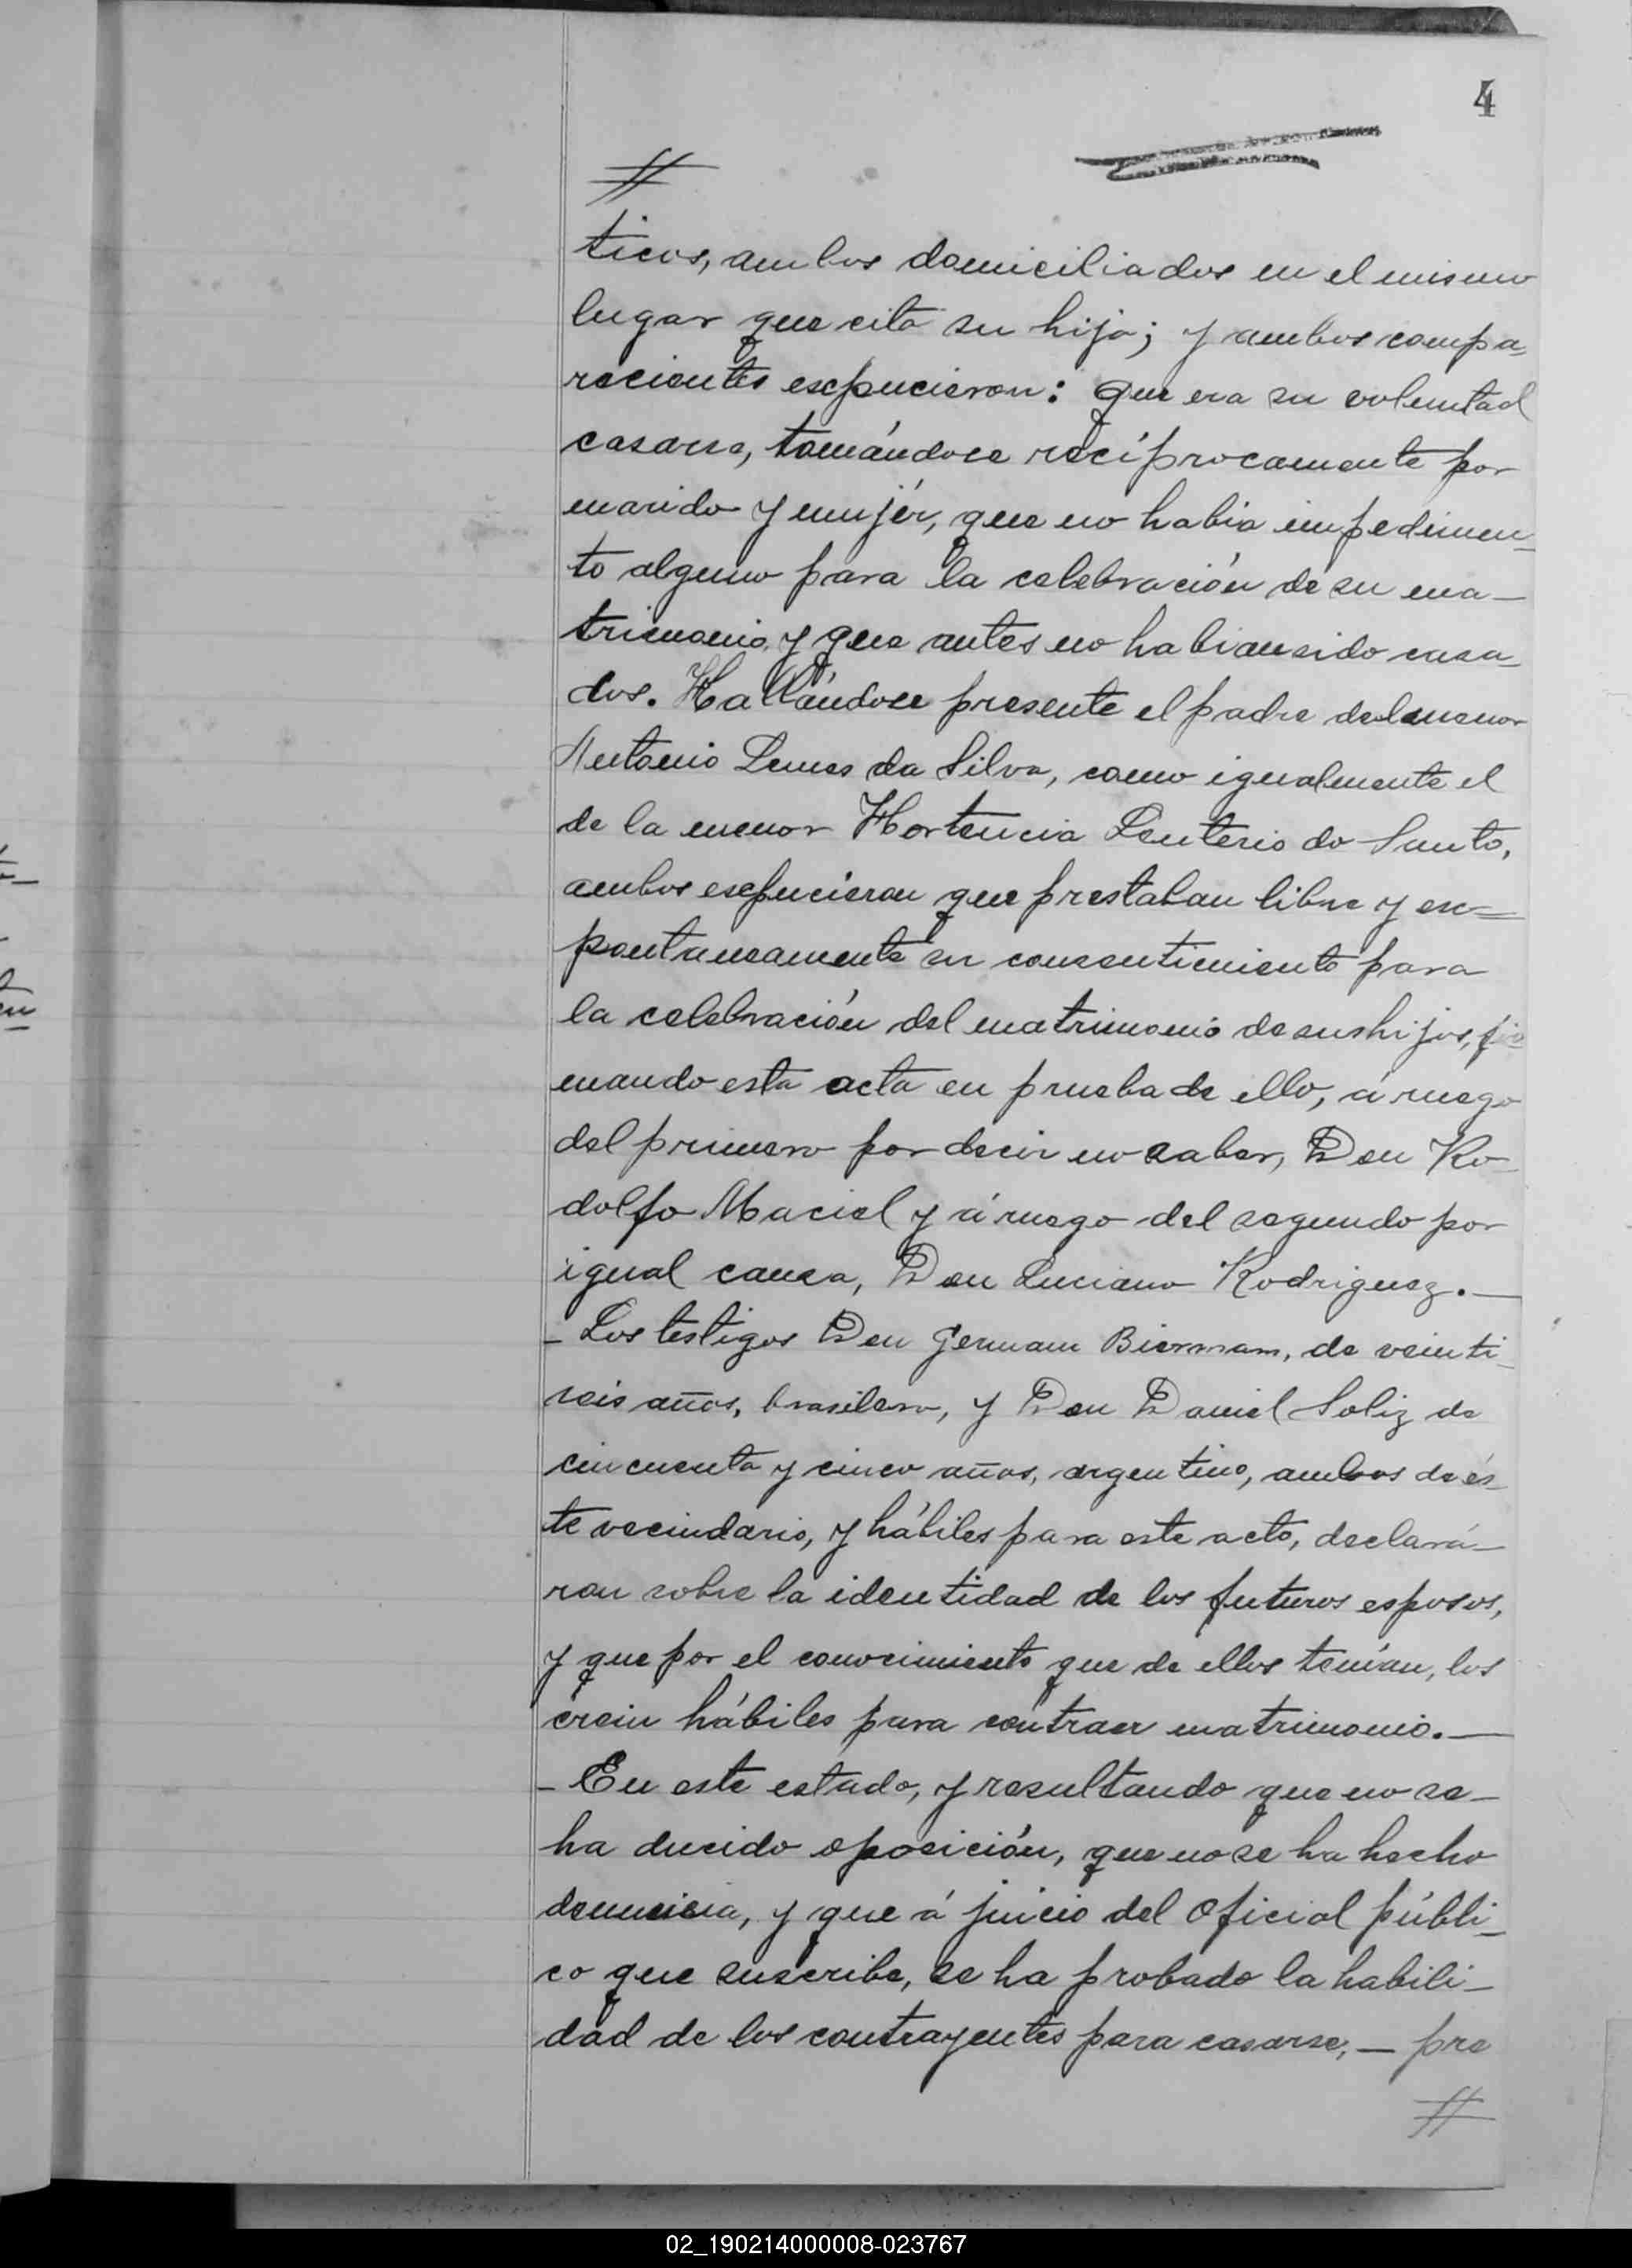 4
#
ticos, ambos domiciliados en el mismo
lugar que cita su hija; y ambos compa-
recientes expucieron: que era su voluntad
casarse, tomándose recíprocamente por
marido y mujér, que no habia impedimen-
to alguno para la celebración de su ma-
trimonio, y que antes no habian sido casa-
dos. Hallándose presente el padre del menor
Antonio Lemes da Silva, como igualmente el
de la menor Hortencia Leuterio do Santo,
ambos expucieron que prestaban libre y es=
pontaneamente su consentimiento para
la celebración del matrimonio de sus hijos, fir
mando esta acta en prueba de ello, á ruego
del primero por decir no saber, Don Ro-
dolfo Maciel y á ruego del segundo por
igual causa, Don Luciano Rodriguez.—
- Los testigos Don German Bierman, de veinti-
seis años, brasilero, y Don Daniel Soliz de
cincuenta y cinco años, argentino, ambos de és-
te vecindario, y hábiles para este acto, declará-
ron sobre la identidad de los futuros esposos,
y que por el conocimiento que de ellos tenían, los
créin hábiles para contraer matrimonio.—
- En este estado, y resultando que no se-
ha ducido oposición, que no se ha hecho
denuncia, y que á juicio del oficial públi-
co que suscribe, se ha probado la habili-
dad de los contrayentes para casarse,— pre
#
02_190214000008-023767